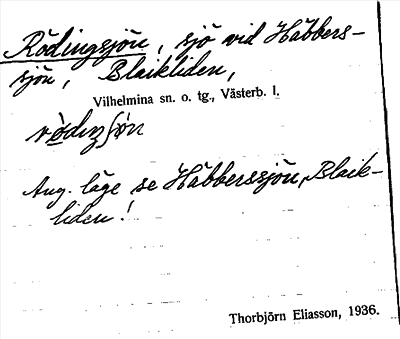 Rödingsjön, sjö vid Häbbers-
sjön, Blaikliden,
Vilhelmina sn. o. tg., Västerb. l.
Ang. läge se Häbberssjön, Blaik-
liden!
Thorbjörn Eliasson, 1936.